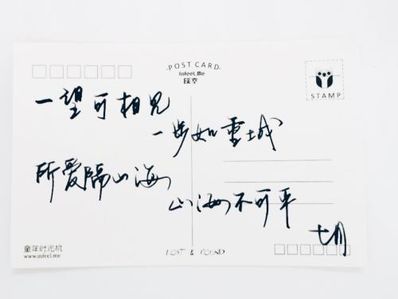 POST CARD
infeel.me
STAMP
一望可相见
一步如重城
所爱隔山海
山海不可平
七月
童年时光机
www.infeel.me
LOST & FOUND